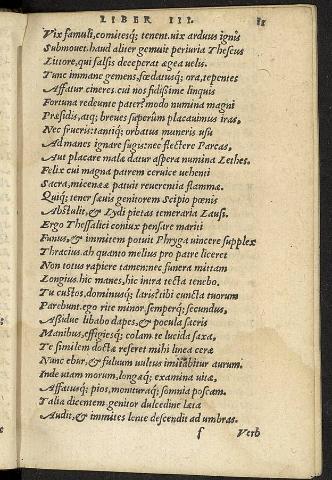 LIBER III.
Vix famuli, comitesq; tenent. uix arduus ignis
Submouet. haud aliter gemuit periuria Theseus
Littore, qui falsis deceperat ægea uelis.
Tunc immane gemens, fœdatusq; ora, tepentes
Affatur cineres. cui nos fidißime linquis
Fortuna redeunte pater? modo numina magni
Præsidis, atq; breues superûm placauimus iras.
Nec frueris: tantiq; orbatus muneris usu
Ad manes ignare fugis: nec flectere Parcas,
Aut placare malæ datur aspera numina Lethes.
Felix cui magna patrem ceruice uehenti
Sacra, miceneæ patuit reuerentia flammæ.
Quiq; tener sæuis genitorem Scipio pœnis
Abstulit, & Lydi pietas temeraria Lausi.
Ergo Thessalici coniux pensare mariti
Funus, & immitem potuit Phryga uincere supplex
Thracius. ah quanto melius pro patre liceret
Non totus rapiere tamen: nec funera mittam
Longius. hic manes, hic intra tecta tenebo.
Tu custos, dominusq; laris: tibi cuncta tuorum
Parebunt. ego rite minor, semperq; secundus,
Aßidue libabo dapes, & pocula sacris
Manibus, effigiesq; colam. te lucida saxa,
Te similem doctæ referet mihi linea ceræ
Nunc ebur, & fuluum uultus imitabitur aurum.
Inde uiam morum, longæq; examina uitæ,
Affatusq; pios, monituraq; somnia poscam.
Talia dicentem genitor dulcedine læta
Audit, & immites lente descendit ad umbras.
f Verb